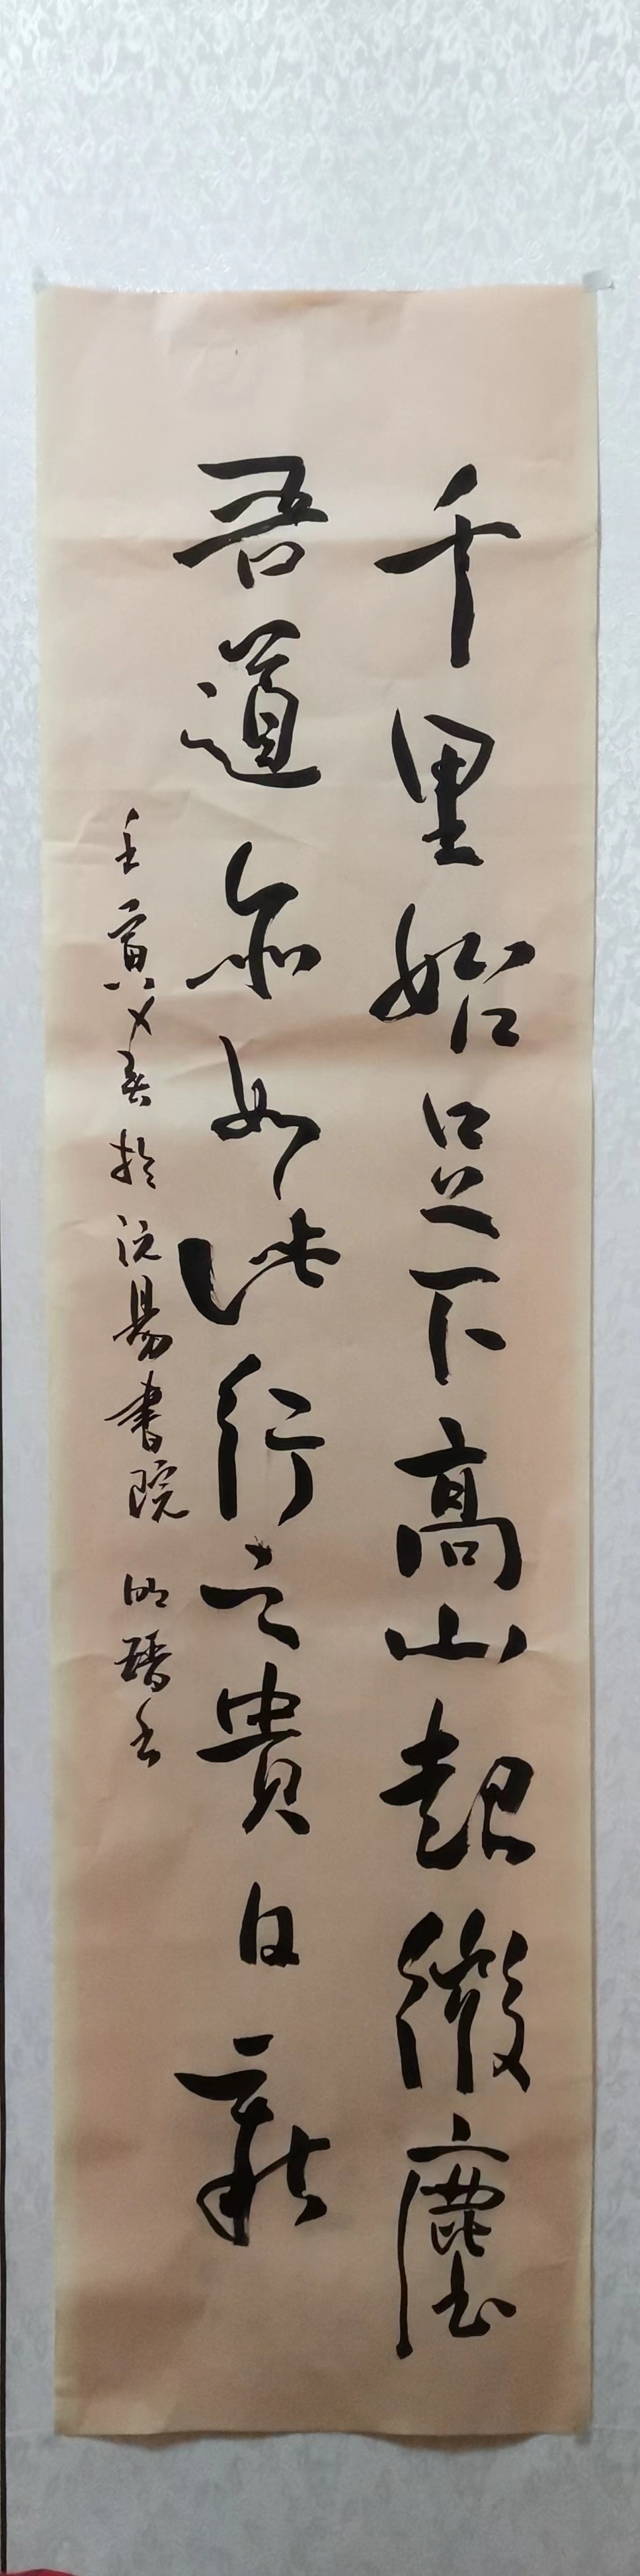 千里始足下高山起微塵
吾道亦如此行之貴日新
壬寅春於沅易書院 明瑨書